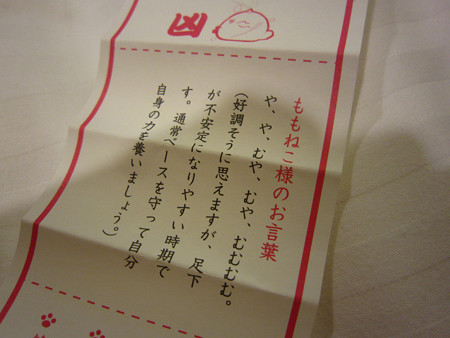 凶
ももねこ様のお言葉
や、や、むや、むや、むむむむ。
(好調そうに思えますが、足下
が不安定になりやすい時期で
す。通常ペースを守って自分
自身の力を養いましょう。)